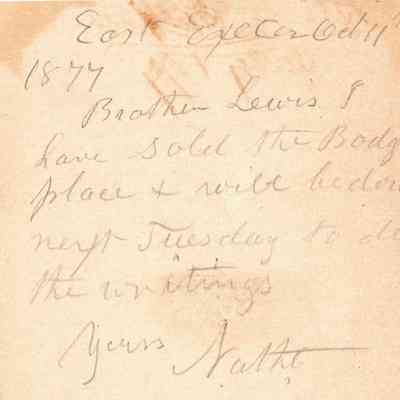 East Exeter Oct 11
1877
Brother Lewis I
have sold the Bodg
place & will be down
next Tuesday to do
the writings
Yours Nathl